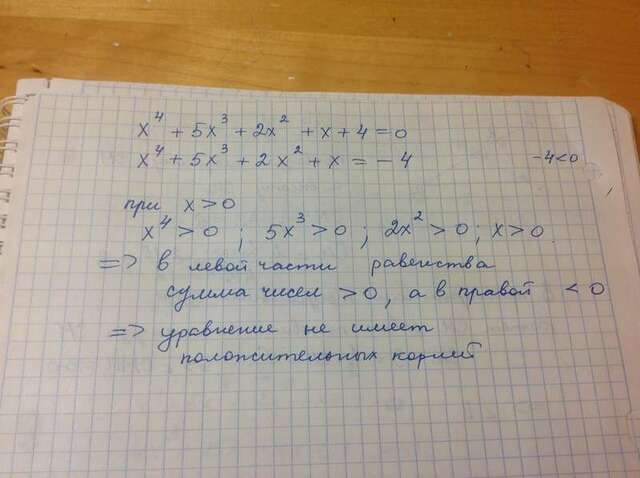 x⁴ + 5x³ + 2x² + x + 4 = 0
x⁴ + 5x³ + 2x² + x = - 4 -4<0
при x > 0
x⁴ > 0 ; 5x³ > 0 ; 2x² > 0 ; x > 0
=> в левой части равенства
сумма чисел > 0, а в правой < 0
=> уравнение не имеет
положительных корней